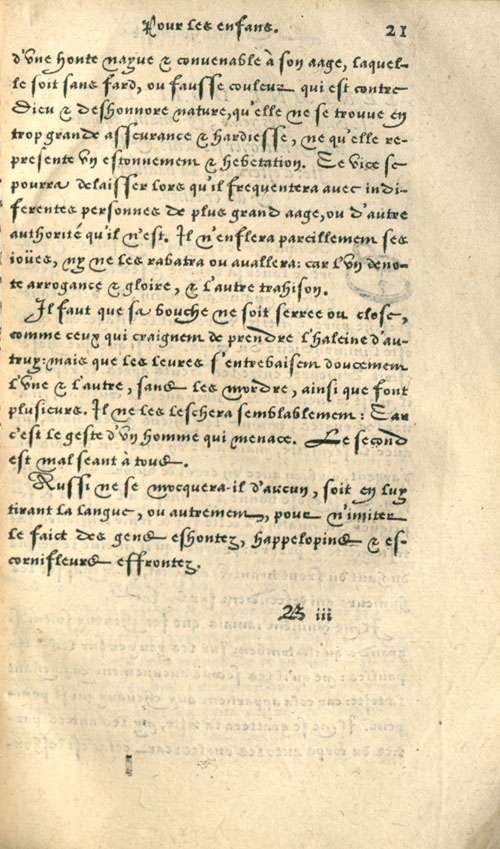 Pour les enfans. 21
d'vne honte nayue & conuenable à son aage, laquel-
le soit sans fard, ou fausse couleur qui est contre
Dieu & deshonnore nature, qu'elle ne se trouue en
trop grande asseurance & hardiesse, ne qu'elle re-
presente vn estonnement & hebetation. Ce vice se
pourra delaisser lors qu'il frequentera auec indi-
fferentes personnes de plus grand aage, ou d'autre
authorité qu'il n'est. Il n'enflera pareillement ses
ioües, ny ne les rabatra ou auallera: car l'vn deno-
te arrogance & gloire, & l'autre trahison.
Il faut que sa bouche ne soit serree ou close,
comme ceux qui craignent de prendre l'haleine d'au-
truy: mais que les leures s'entrebaisent doucement
l'vne & l'autre, sans les mordre, ainsi que font
plusieurs. Il ne les leschera semblablement: Car
c'est le geste d'vn homme qui menace. Le second
est mal seant à tous.
Aussi ne se mocquera-il d'aucun, soit en luy
tirant la langue, ou autrement, pour n'imiter
le faict des gens eshontez, happelopins & es-
cornifleurs effrontez.
B iii